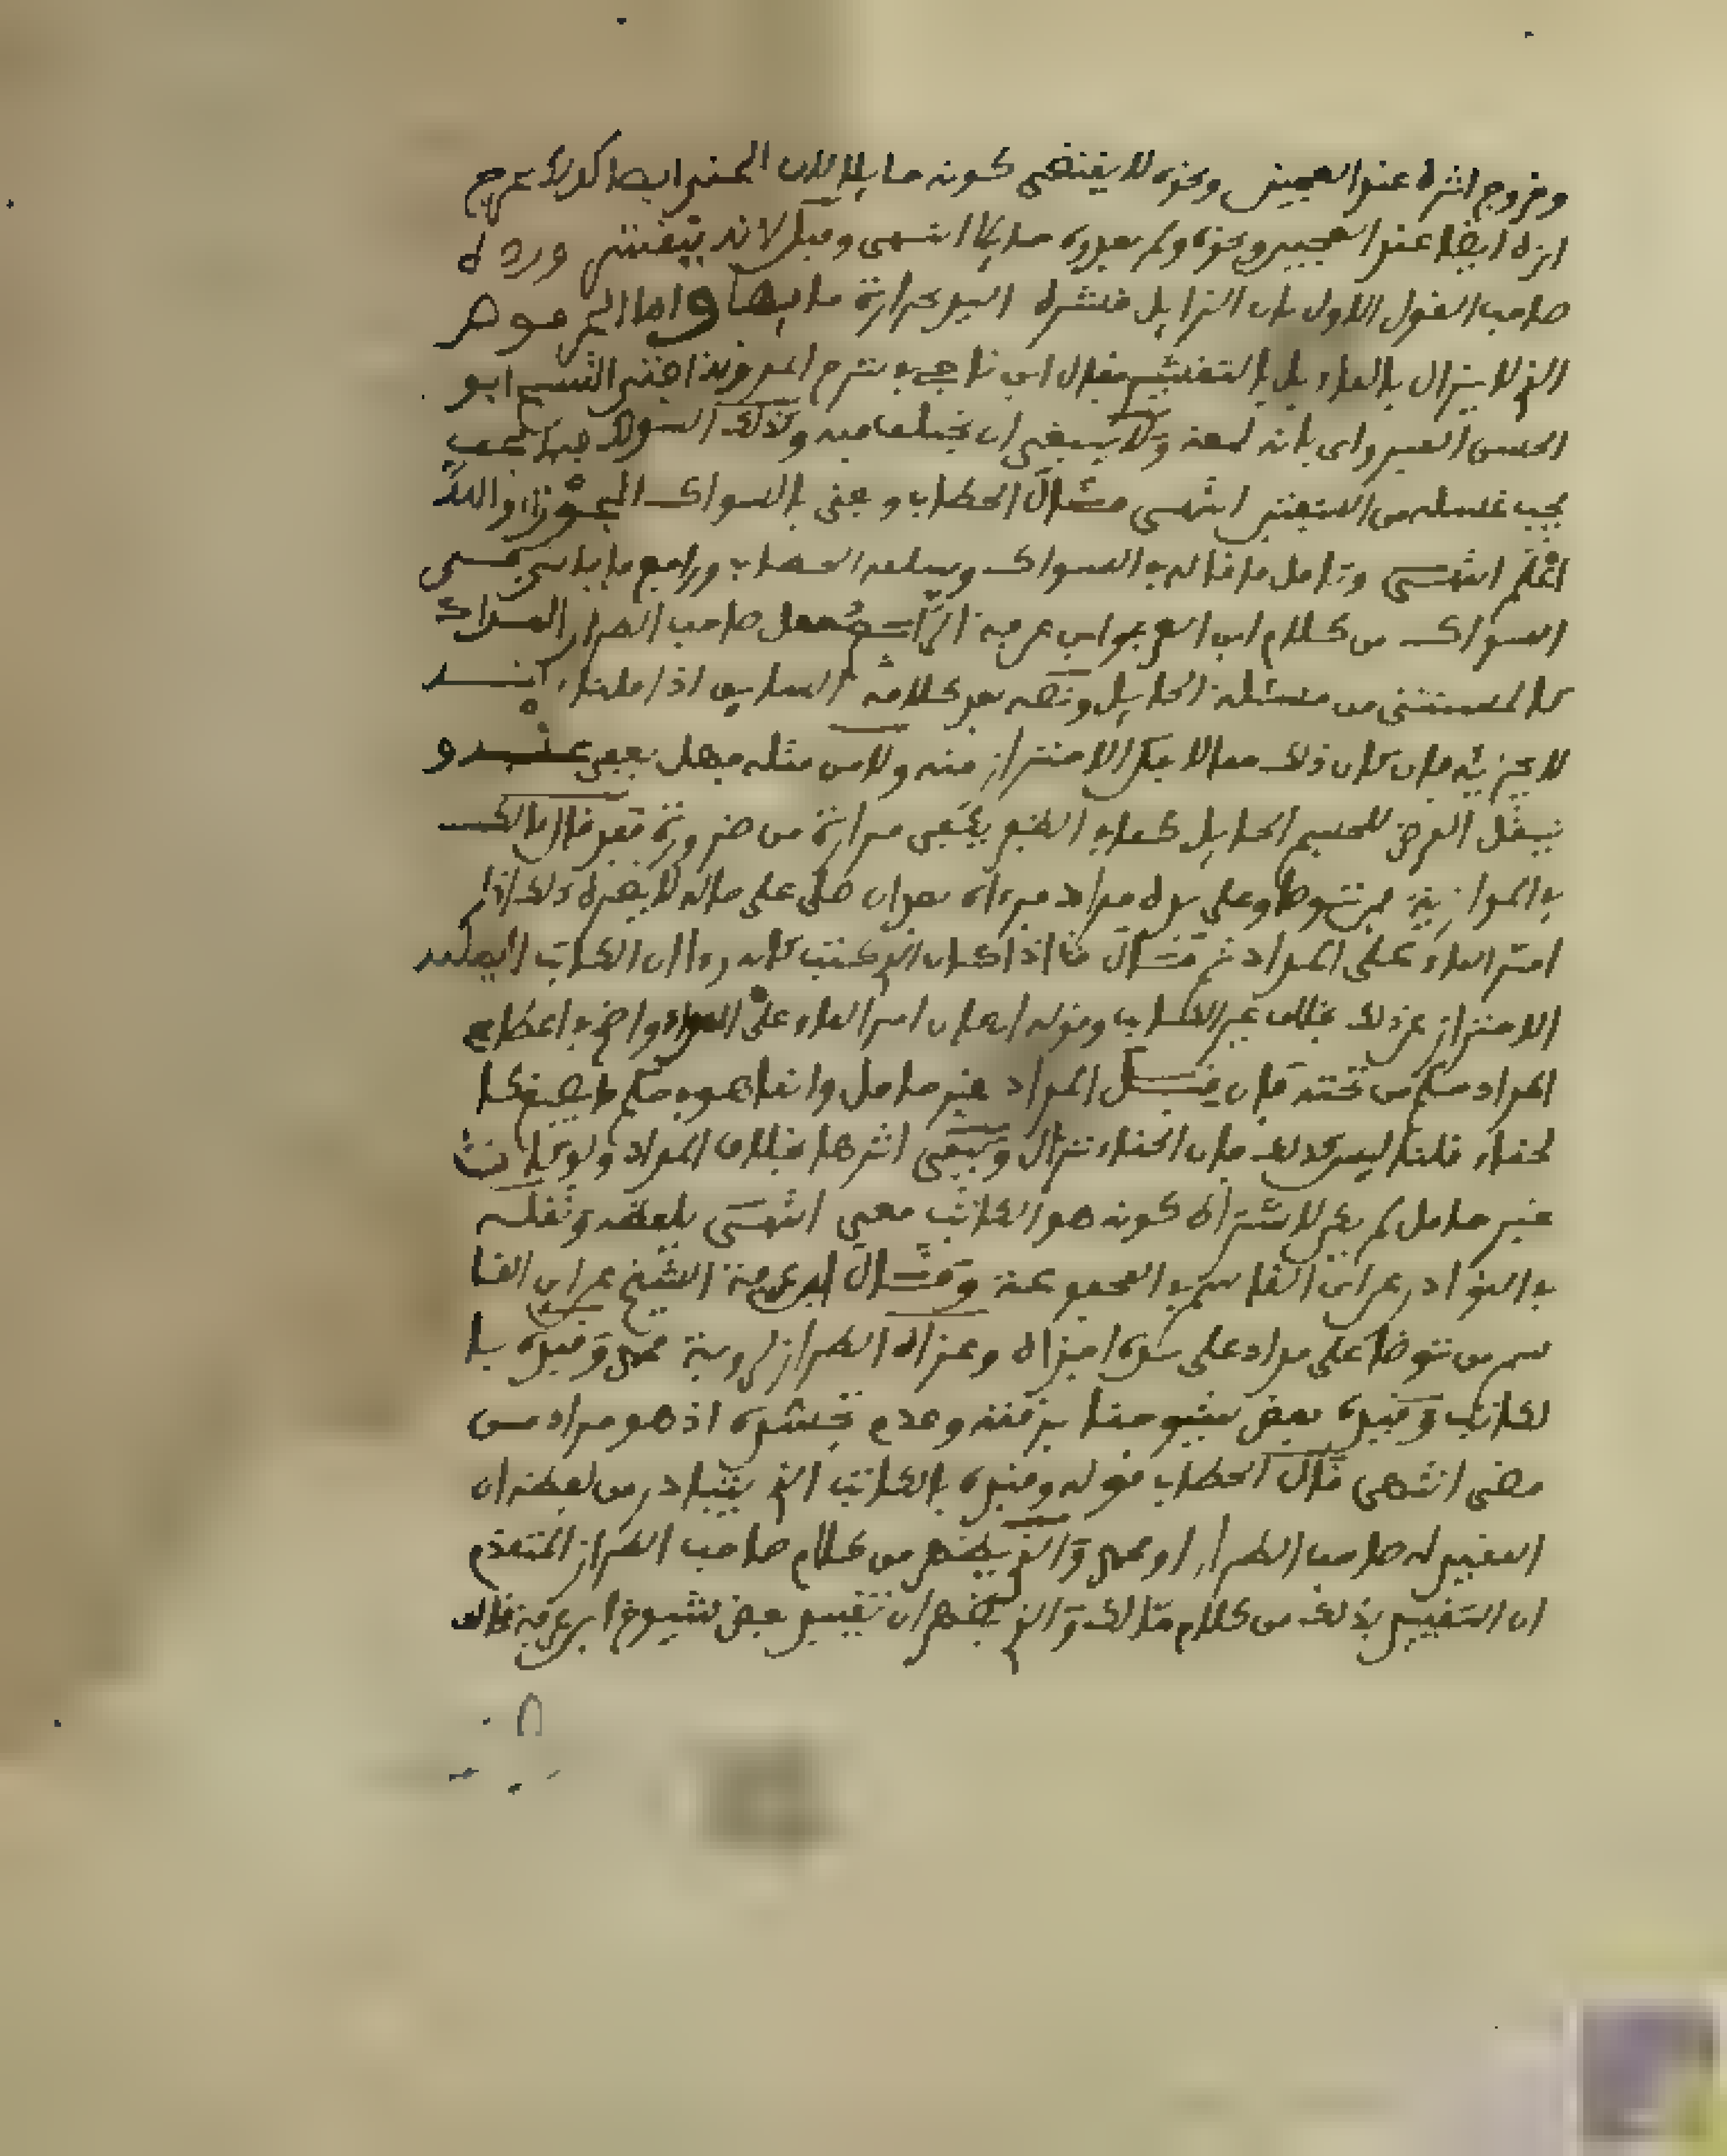 وخروج اثره عند العجين ونحوه لا يقتضي كونه حايلا لان الحنا ايضا كذلك يخرج
اثره ايضا عند العجين ونحوه ولم يعدوه حايلا انتهى وقيل لا لانه يتقشر ورده
صاحب القول الاول بان الزايل قشرة اليد بحرارة ما بها واما الذي هو
الذي لا يزال بالماء بل بالتقشير فقال ابن ناجي في شرح المدونة افتى الشيخ ابو
الحسن العبيدلي بانه لمعة ولا ينبغي ان يختلف فيه وكذلك السواك
يجب غسله من الشفتين انتهى قال الحطاب وعنى بالسواك الجوزاء والله
اعلم انتهى وتامل ما قاله في السواك
السواك من كلام ابن العربي وابن عرفة صاحب الطراز المداد
كالمستثنى من مسئلة الحايل ونصه بعد كلامه السابق اذا قلنا
لا يجزيه فان كان ذلك مما لا يمكن الاحتراز منه ولا من مثله فهل يعفى عنه و
ينقل الفرض للجسم الحايل كما في الظفر يكسى مرارة من ضرورة فقد قال مالك
في الموازية فيمن توضا وعلى يده مداد فرءاه بعد ان صلى على حاله لا يضره ذلك اذا
امر الماء على المداد ثم قال هذا اذا كان الذي كتب كانه رءا ان الكاتب لا يمكنه
الاحتراز عن ذلك بخلاف غير الكاتب وقوله اذا كان امر الماء على المداد واضح في اعطاء
المداد حكم من تحته فان قيل المداد غير حامل وانما هو في حكم ما يصبغ كا
لحناء قلنا ليس كذلك فان الحناء تزال ويبقى اثرها بخلاف المداد ولو كانت
غير حامل لم يكن لاشتراط كونه هو الكاتب معنى انتهى بلفظه ونقله
في النوادر عن ابن القاسم في المجموعة وقال ابن عرفة الشيخ عن ابن القا
سم من توضا على مداد على يده اجزاه وعزاه الطراز لرواية محمد وقيده با
لكاتب وقيده بعض شيوخنا برقته وعدم تجسده اذ هو مداد من
مضى انتهى قال الحطاب قوله وقيده بالكاتب الذي يتبادر من لفظه ان
المقيد له صاحب الطراز او محمد والذي يظهر من كلام صاحب الطراز المتقدم
ان التقييد بذلك من كلام مالك والذي يظهر ان تقييد بعض شيوخ ابن عرفة